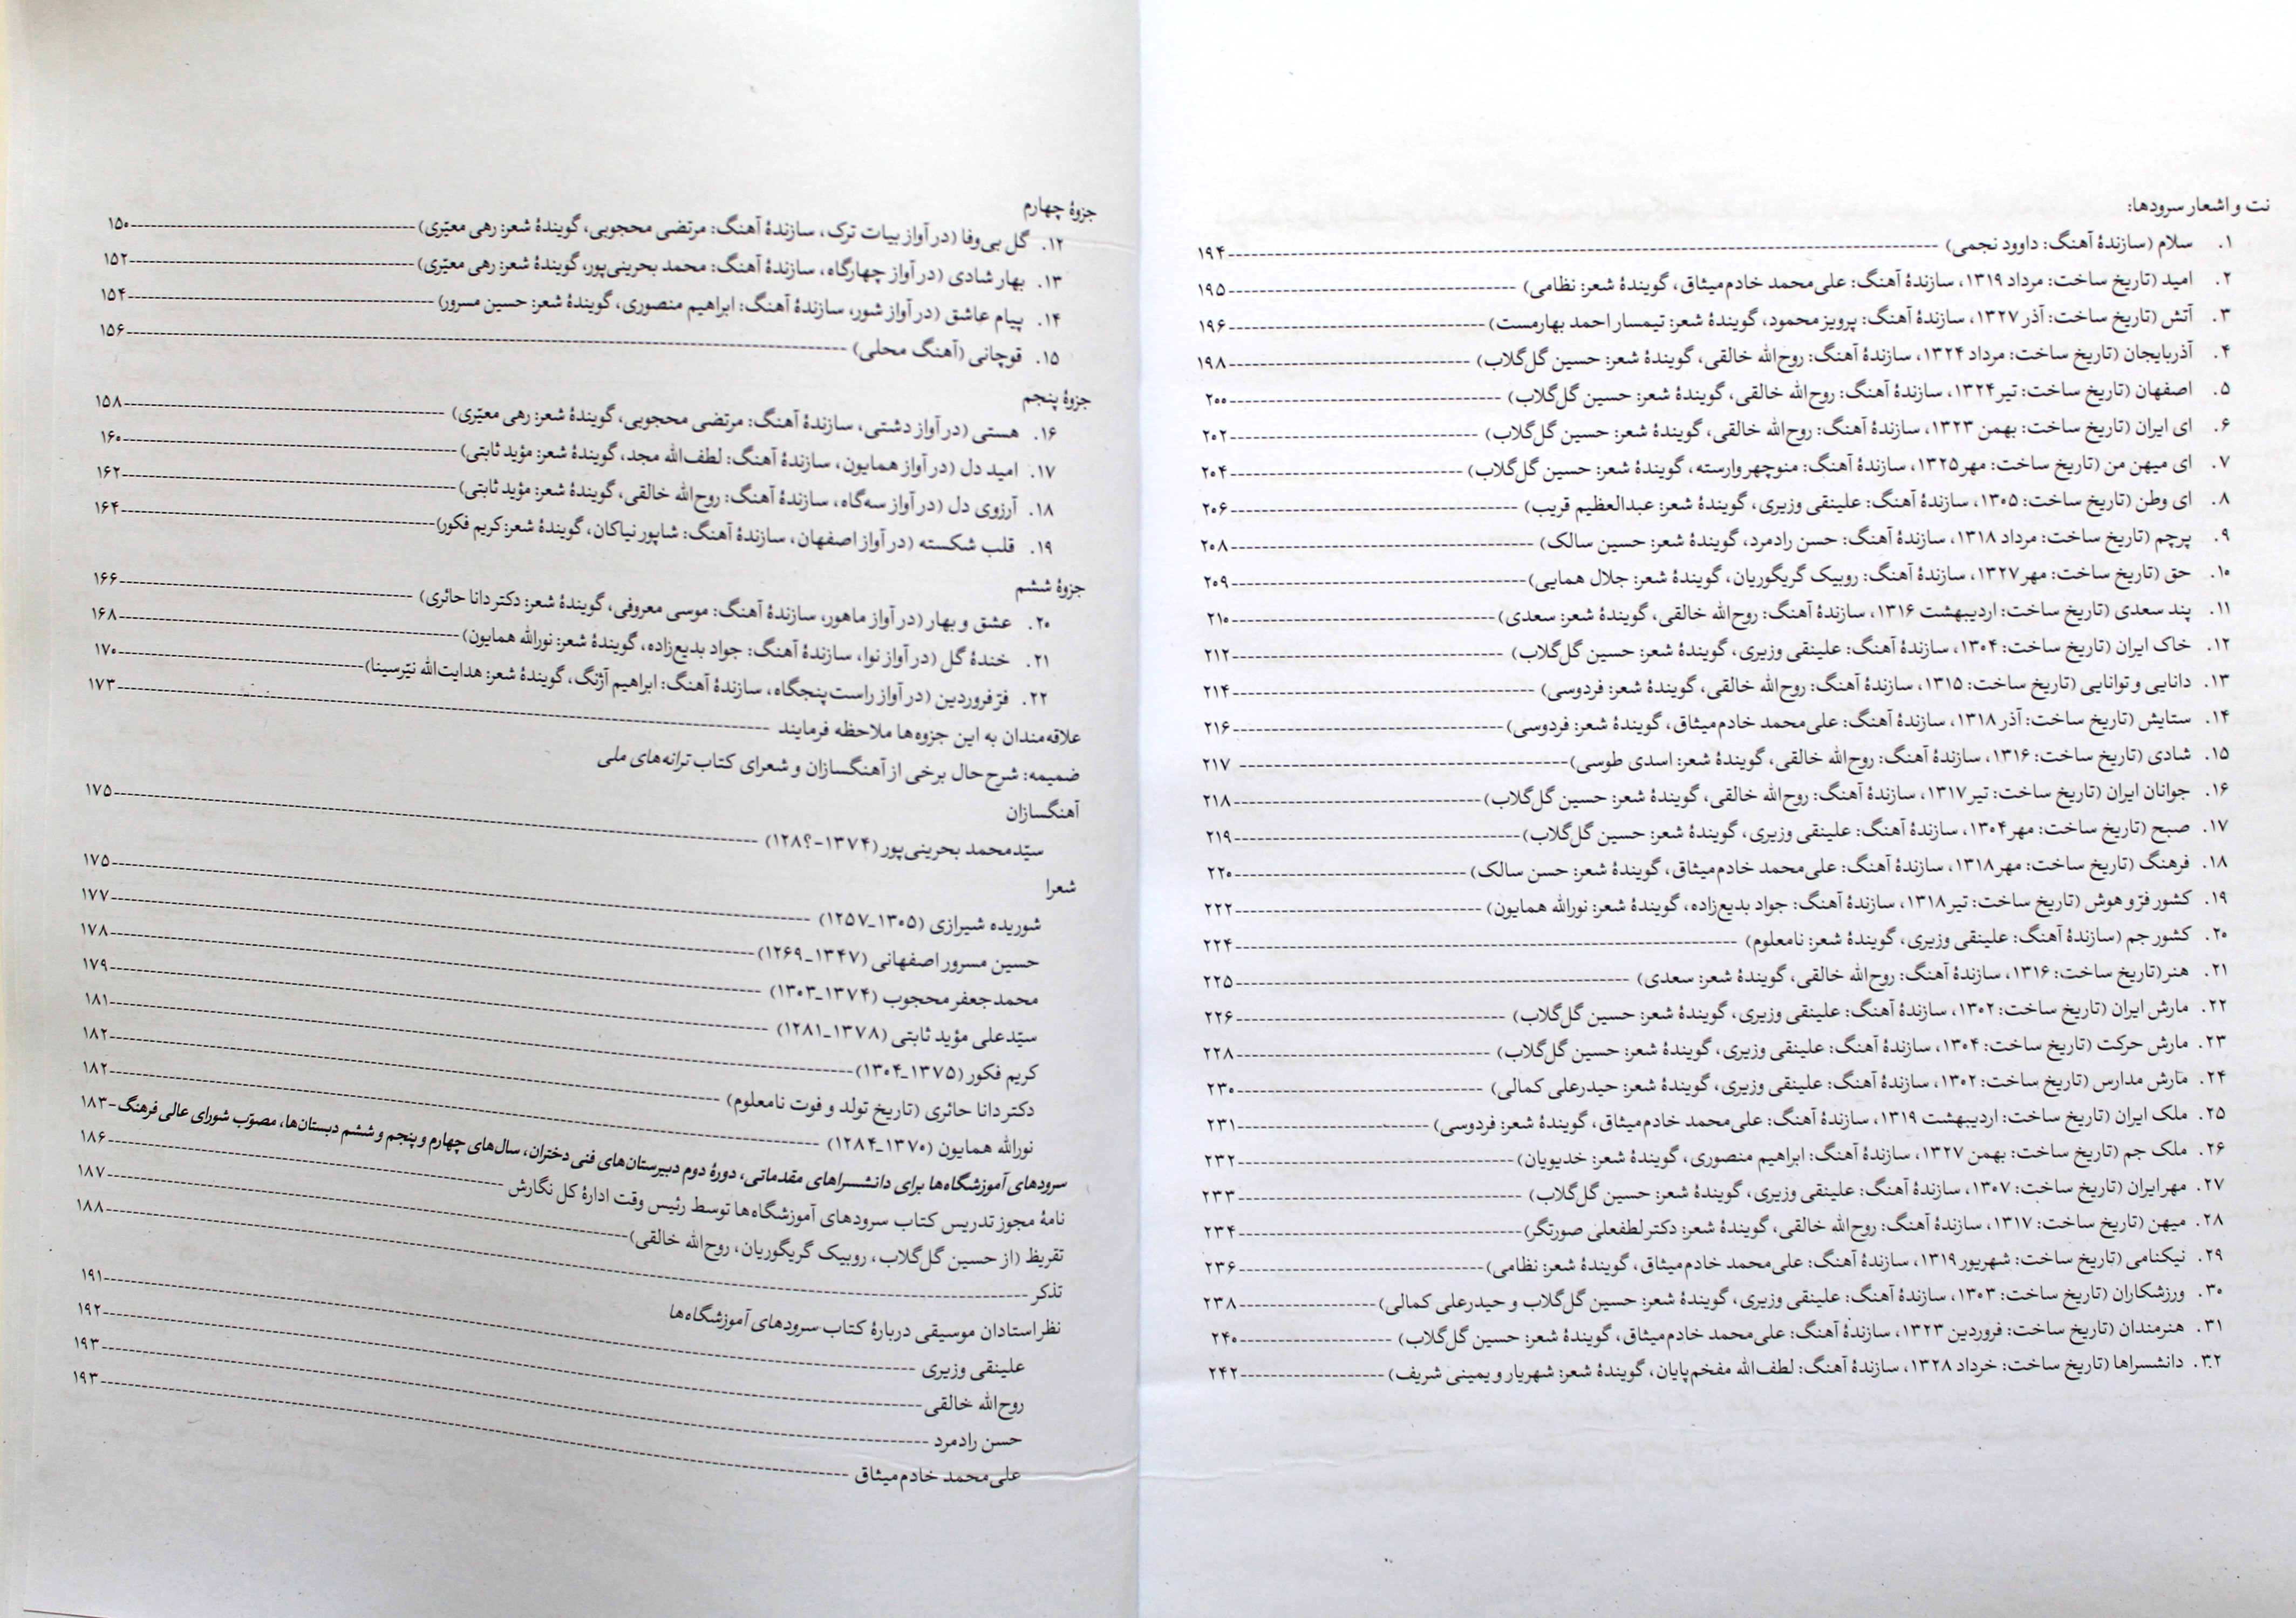 جزوهٔ چهارم
۱۲. گل بی‌وفا (در آواز بیات ترک، سازندهٔ آهنگ: مرتضی محجوبی، گویندهٔ شعر: رهی معیّری) ۱۵۰
۱۳. بهار شادی (در آواز چهارگاه، سازندهٔ آهنگ: محمد بحرینی‌پور، گویندهٔ شعر: رهی معیّری) ۱۵۲
۱۴. پیام عاشق (در آواز شور، سازندهٔ آهنگ: ابراهیم منصوری، گویندهٔ شعر: حسین مسرور) ۱۵۴
۱۵. قوچانی (آهنگ محلی) ۱۵۶
جزوهٔ پنجم
۱۶. هستی (در آواز دشتی، سازندهٔ آهنگ: مرتضی محجوبی، گویندهٔ شعر: رهی معیّری) ۱۵۸
۱۷. امید دل (در آواز همایون، سازندهٔ آهنگ: لطف‌الله مجد، گویندهٔ شعر: مؤید ثابتی) ۱۶۰
۱۸. آرزوی دل (در آواز سه‌گاه، سازندهٔ آهنگ: روح‌الله خالقی، گویندهٔ شعر: مؤید ثابتی) ۱۶۲
۱۹. قلب شکسته (در آواز اصفهان، سازندهٔ آهنگ: شاپور نیاکان، گویندهٔ شعر: کریم فکور) ۱۶۴
جزوهٔ ششم
۲۰. عشق و بهار (در آواز ماهور، سازندهٔ آهنگ: موسی معروفی، گویندهٔ شعر: دکتر دانا حائری) ۱۶۶
۲۱. خندهٔ گل (در آواز نوا، سازندهٔ آهنگ: جواد بدیع‌زاده، گویندهٔ شعر: نورالله همایون) ۱۶۸
۲۲. فرّ فروردین (در آواز راست‌پنجگاه، سازندهٔ آهنگ: ابراهیم آژنگ، گویندهٔ شعر: هدایت‌الله نیّرسینا) ۱۷۰
علاقه‌مندان به این جزوه‌ها ملاحظه فرمایند ۱۷۳
ضمیمه: شرح حال برخی از آهنگسازان و شعرای کتاب ترانه‌های ملی
آهنگسازان
سیّدمحمد بحرینی‌پور (۱۳۷۴-؟۱۲۸) ۱۷۵
شعرا
شوریده شیرازی (۱۳۰۵_۱۲۵۷) ۱۷۵
حسین مسرور اصفهانی (۱۳۴۷_۱۲۶۹) ۱۷۷
محمدجعفر محجوب (۱۳۷۴_۱۳۰۳) ۱۷۸
سیّدعلی مؤید ثابتی (۱۳۷۸_۱۲۸۱) ۱۷۹
کریم فکور (۱۳۷۵_۱۳۰۴) ۱۸۱
دکتر دانا حائری (تاریخ تولد و فوت نامعلوم) ۱۸۲
نورالله همایون (۱۳۷۰_۱۲۸۴) ۱۸۲
سرودهای آموزشگاه‌ها برای دانشسراهای مقدماتی، دورهٔ دوم دبیرستان‌های فنی دختران، سال‌های چهارم و پنجم و ششم دبستان‌ها، مصوّب شورای عالی فرهنگ ۱۸۳
نامهٔ مجوز تدریس کتاب سرودهای آموزشگاه‌ها توسط رئیس وقت ادارهٔ کل نگارش ۱۸۶
تقریظ (از حسین گل‌گلاب، روبیک گریگوریان، روح‌الله خالقی) ۱۸۷
تذکر ۱۸۸
نظر استادان موسیقی دربارهٔ کتاب سرودهای آموزشگاه‌ها
علینقی وزیری ۱۹۱
روح‌الله خالقی ۱۹۲
حسن رادمرد ۱۹۳
علی‌محمد خادم‌میثاق ۱۹۳
نت و اشعار سرودها:
۱. سلام (سازندهٔ آهنگ: داوود نجمی) ۱۹۴
۲. امید (تاریخ ساخت: مرداد ۱۳۱۹، سازندهٔ آهنگ: علی‌محمد خادم‌میثاق، گویندهٔ شعر: نظامی) ۱۹۵
۳. آتش (تاریخ ساخت: آذر ۱۳۲۷، سازندهٔ آهنگ: پرویز محمود، گویندهٔ شعر: تیمسار احمد بهارمست) ۱۹۶
۴. آذربایجان (تاریخ ساخت: مرداد ۱۳۲۴، سازندهٔ آهنگ: روح‌الله خالقی، گویندهٔ شعر: حسین گل‌گلاب) ۱۹۸
۵. اصفهان (تاریخ ساخت: تیر ۱۳۲۴، سازندهٔ آهنگ: روح‌الله خالقی، گویندهٔ شعر: حسین گل‌گلاب) ۲۰۰
۶. ای ایران (تاریخ ساخت: بهمن ۱۳۲۳، سازندهٔ آهنگ: روح‌الله خالقی، گویندهٔ شعر: حسین گل‌گلاب) ۲۰۲
۷. ای میهن من (تاریخ ساخت: مهر ۱۳۲۵، سازندهٔ آهنگ: منوچهر وارسته، گویندهٔ شعر: حسین گل‌گلاب) ۲۰۴
۸. ای وطن (تاریخ ساخت: ۱۳۰۵، سازندهٔ آهنگ: علینقی وزیری، گویندهٔ شعر: عبدالعظیم قریب) ۲۰۶
۹. پرچم (تاریخ ساخت: مرداد ۱۳۱۸، سازندهٔ آهنگ: حسن رادمرد، گویندهٔ شعر: حسین سالک) ۲۰۸
۱۰. حق (تاریخ ساخت: مهر ۱۳۲۷، سازندهٔ آهنگ: روبیک گریگوریان، گویندهٔ شعر: جلال همایی) ۲۰۹
۱۱. پند سعدی (تاریخ ساخت: اردیبهشت ۱۳۱۶، سازندهٔ آهنگ: روح‌الله خالقی، گویندهٔ شعر: سعدی) ۲۱۰
۱۲. خاک ایران (تاریخ ساخت: ۱۳۰۴، سازندهٔ آهنگ: علینقی وزیری، گویندهٔ شعر: حسین گل‌گلاب) ۲۱۲
۱۳. دانایی و توانایی (تاریخ ساخت: ۱۳۱۵، سازندهٔ آهنگ: روح‌الله خالقی، گویندهٔ شعر: فردوسی) ۲۱۴
۱۴. ستایش (تاریخ ساخت: آذر ۱۳۱۸، سازندهٔ آهنگ: علی‌محمد خادم‌میثاق، گویندهٔ شعر: فردوسی) ۲۱۶
۱۵. شادی (تاریخ ساخت: ۱۳۱۶، سازندهٔ آهنگ: روح‌الله خالقی، گویندهٔ شعر: اسدی طوسی) ۲۱۷
۱۶. جوانان ایران (تاریخ ساخت: تیر ۱۳۱۷، سازندهٔ آهنگ: روح‌الله خالقی، گویندهٔ شعر: حسین گل‌گلاب) ۲۱۸
۱۷. صبح (تاریخ ساخت: مهر ۱۳۰۴، سازندهٔ آهنگ: علینقی وزیری، گویندهٔ شعر: حسین گل‌گلاب) ۲۱۹
۱۸. فرهنگ (تاریخ ساخت: مهر ۱۳۱۸، سازندهٔ آهنگ: علی‌محمد خادم‌میثاق، گویندهٔ شعر: حسن سالک) ۲۲۰
۱۹. کشور فرّ و هوش (تاریخ ساخت: تیر ۱۳۱۸، سازندهٔ آهنگ: جواد بدیع‌زاده، گویندهٔ شعر: نورالله همایون) ۲۲۲
۲۰. کشور جم (سازندهٔ آهنگ: علینقی وزیری، گویندهٔ شعر: نامعلوم) ۲۲۴
۲۱. هنر (تاریخ ساخت: ۱۳۱۶، سازندهٔ آهنگ: روح‌الله خالقی، گویندهٔ شعر: سعدی) ۲۲۵
۲۲. مارش ایران (تاریخ ساخت: ۱۳۰۲، سازندهٔ آهنگ: علینقی وزیری، گویندهٔ شعر: حسین گل‌گلاب) ۲۲۶
۲۳. مارش حرکت (تاریخ ساخت: ۱۳۰۴، سازندهٔ آهنگ: علینقی وزیری، گویندهٔ شعر: حسین گل‌گلاب) ۲۲۸
۲۴. مارش مدارس (تاریخ ساخت: ۱۳۰۲، سازندهٔ آهنگ: علینقی وزیری، گویندهٔ شعر: حیدرعلی کمالی) ۲۳۰
۲۵. ملک ایران (تاریخ ساخت: اردیبهشت ۱۳۱۹، سازندهٔ آهنگ: علی‌محمد خادم‌میثاق، گویندهٔ شعر: فردوسی) ۲۳۱
۲۶. ملک جم (تاریخ ساخت: بهمن ۱۳۲۷، سازندهٔ آهنگ: ابراهیم منصوری، گویندهٔ شعر: خدیویان) ۲۳۲
۲۷. مهر ایران (تاریخ ساخت: ۱۳۰۷، سازندهٔ آهنگ: علینقی وزیری، گویندهٔ شعر: حسین گل‌گلاب) ۲۳۳
۲۸. میهن (تاریخ ساخت: ۱۳۱۷، سازندهٔ آهنگ: روح‌الله خالقی، گویندهٔ شعر: دکتر لطفعلی صورتگر) ۲۳۴
۲۹. نیکنامی (تاریخ ساخت: شهریور ۱۳۱۹، سازندهٔ آهنگ: علی‌محمد خادم‌میثاق، گویندهٔ شعر: نظامی) ۲۳۶
۳۰. ورزشکاران (تاریخ ساخت: ۱۳۰۳، سازندهٔ آهنگ: علینقی وزیری، گویندهٔ شعر: حسین گل‌گلاب و حیدرعلی کمالی) ۲۳۸
۳۱. هنرمندان (تاریخ ساخت: فروردین ۱۳۲۳، سازندهٔ آهنگ: علی‌محمد خادم‌میثاق، گویندهٔ شعر: حسین گل‌گلاب) ۲۴۰
۳۲. دانشسراها (تاریخ ساخت: خرداد ۱۳۲۸، سازندهٔ آهنگ: لطف‌الله مفخم‌پایان، گویندهٔ شعر: شهریار و یمینی شریف) ۲۴۲